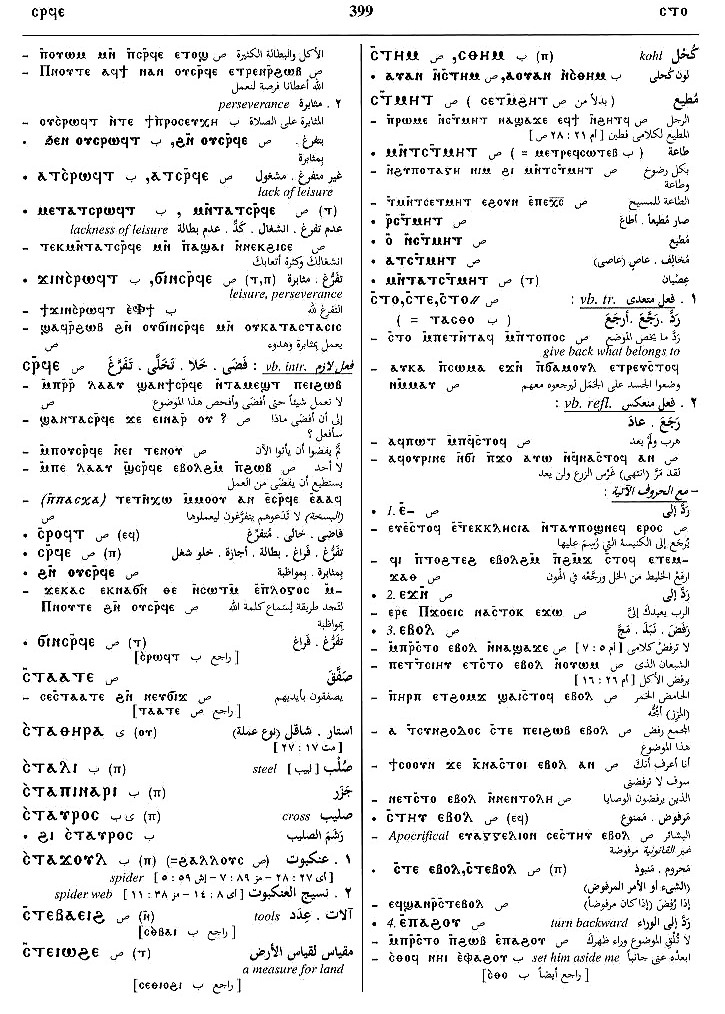 ⲥⲣϥⲉ 399 ⲥⲧⲟ
– ⲡ̄ⲟⲩⲱⲙ ⲙⲛ̄ ⲡⲥⲣ̄ϥⲉ ⲉⲧⲟϣ ص الأكل والبطالة الكثيرة
– Ⲡⲛⲟⲩⲧⲉ ⲁϥϯ ⲛⲁⲛ ⲟⲩⲥⲣ̄ϥⲉ ⲉⲧⲣⲉⲛⲣ̄ϩⲱⲃ ص
الله أعطانا فرصة لنعمل
perseverance ٢ . مثابرة
– ⲟⲩⲥ̀ⲣⲱϥⲧ ⲛ̀ⲧⲉ ϯⲡⲣⲟⲥⲉⲩⲭⲏ ب المثابرة على الصلاة
• ϧⲉⲛ ⲟⲩⲥⲣⲱϥⲧ ب ,ϩⲛ̄ ⲟⲩⲥⲣ̄ϥⲉ ص بتفرغ .
بمثابرة
• ⲁⲧⲥⲣⲱϥⲧ ب ,ⲁⲧⲥⲣ̄ϥⲉ ص غير متفرغ . مشغول
lack of leisure
• ⲙⲉⲧⲁⲧⲥⲣⲱϥⲧ ب , ⲙⲛ̄ⲧⲁⲧⲥⲣ̄ϥⲉ ص (ⲧ)
lackness of leisure عدم تفرغ . انشغال . كدّ . عدم بطالة
– ⲧⲉⲕⲙⲛ̄ⲧⲁⲧⲥⲣ̄ϥⲉ ⲙⲛ̄ ⲡⲁϣⲁⲓ ⲛ̄ⲛⲉⲕϩⲓⲥⲉ ص
انشغالك وكثرة أتعابك
• ϫⲓⲛⲥⲣⲱϥⲧ ب ,ϭⲓⲛⲥⲣ̄ϥⲉ ص (ⲧ,ⲡ) تفرّغ . مثابرة
leisure, perseverance
– ϯϫⲓⲛⲥⲣⲱϥⲧ ⲉ̀Ⲫϯ ب التفرغ لله
– ϣⲁϥⲣ̄ϩⲱⲃ ϩⲛ̄ ⲟⲩϭⲓⲛⲥⲣ̄ϥⲉ ⲙⲛ̄ ⲟⲩⲕⲁⲧⲁⲥⲧⲁⲥⲓⲥ
ص يعمل بمثابرة وهدوء
ⲥⲣ̄ϥⲉ ص vb. intr. فعل لازم : قَضَى . خَلا . تَخَلَّى . تَفَرَّغَ
– ⲙ̄ⲡⲣ̄ⲣ̄ ⲗⲁⲁⲩ ϣⲁⲛϯⲥⲣ̄ϥⲉ ⲛ̄ⲧⲁⲙⲉϣⲧ ⲡⲉⲓϩⲱⲃ
ص لا تعمل شيئاً حتى أفضى وأفحص هذا الموضوع
– ϣⲁⲛⲧⲁⲥⲣ̄ϥⲉ ϫⲉ ⲉⲓⲛⲁⲣ̄ ⲟⲩ ? ص إلى أن أفضى ماذا
سأفعل ؟
– ⲙ̄ⲡⲟⲩⲥⲣ̄ϥⲉ ⲛ̄ⲉⲓ ⲧⲉⲛⲟⲩ ص لم يفضوا أن يأتوا الآن
– ⲙ̄ⲡⲉ ⲗⲁⲁⲩ ϣ̄ⲥⲣϥⲉ ⲉⲃⲟⲗϩⲙ̄ ⲡ̄ϩⲱⲃ ص لا أحد
يستطيع أن يفضى من العمل
– (ⲙ̄ⲡⲁⲥⲭⲁ) ⲧⲉⲧⲛ̄ⲭⲱ ⲙ̄ⲙⲟⲟⲩ ⲁⲛ ⲉ̄ⲥⲣ̄ϥⲉ ⲉ̄ⲁⲁϥ
ص (البسخة) لا تدعوهم يتفرغون ليعملوها
• ⲥ̄ⲣⲟϥⲧ ص (ⲉϥ) فاضى . خالى . متفرّغ
• ⲥⲣ̄ϥⲉ ص (ⲡ) تفرّغ . فراغ . بطالة . أجازة . خلو شغل
• ϩⲛ̄ ⲟⲩⲥⲣ̄ϥⲉ ص بمثابرة . بمواظبة
– ϫⲉⲕⲁⲥ ⲉⲕⲛⲁϭⲛ̄ ⲑⲉ ⲛ̄ⲥⲱⲧⲙ̄ ⲉ̄ⲡⲗⲟⲅⲟⲥ ⲙ̄-
Ⲡⲛⲟⲩⲧⲉ ϩⲛ̄ ⲟⲩⲥⲣ̄ϥⲉ ص لتجد طريقة لإستماع كلمة الله
بمواظبة
• ϭⲓⲛⲥⲣ̄ϥⲉ ص (ⲧ) تفرّغ . فراغ
[ راجع ب ⲥ̀ⲣⲱϥⲧ]
ⲥ̄ⲧⲁⲁⲧⲉ ص صَفَّقَ
– ⲥⲉⲥ̄ⲧⲁⲁⲧⲉ ϩⲛ̄ ⲛⲉⲩϭⲓϫ ص يصفقون بأيديهم
[ راجع ص ⲧⲁⲁⲧⲉ]
ⲥ̀ⲧⲁⲑⲏⲣⲁ ى (ⲟⲩ) استار . شاقل (نوع عملة)
[ مت ١٧ : ٢٧ ]
ⲥ̀ⲧⲁⲗⲓ ب (ⲡ) steel صُلْب [ ليب ]
ⲥ̀ⲧⲁⲡⲓⲛⲁⲣⲓ ب (ⲡ) جَزَر
ⲥ̀ⲧⲁⲩⲣⲟⲥ ى ب (ⲡ) cross صليب
• ϩⲓ ⲥ̀ⲧⲁⲩⲣⲟⲥ ب رَشَمَ الصليب
ⲥ̀ⲧⲁϫⲟⲩⲗ ب (ⲡ) (=ϩⲁⲗⲗⲟⲩⲥ ص) ١ . عنكبوت
spider [ أى ٢٧ : ٢٨ – مز ٨٩ : ٧ – إش ٥٩ : ٥ ]
spider web [ أى ٨ : ١٤ – مز ٣٨ : ١١ ] ٢ . نسيج العنكبوت
ⲥ̄ⲧⲉⲃⲁⲉⲓϩ ص (ⲛ̄) tools آلات . عِدَد
[ راجع ب ⲥ̀ⲟⲃⲁⲓ]
ⲥ̄ⲧⲉⲓⲱϩⲉ ص (ⲧ) مقياس لقياس الأرض
a measure for land
[ راجع ب ⲥⲉⲑⲓⲟϩⲓ]
ⲥ̄ⲧⲏⲙ ص ,ⲥⲑⲏⲙ ب (ⲡ) kohl كُحْل
• ⲁⲩⲁⲛ ⲛ̄ⲥⲧⲏⲙ ص ,ⲁⲟⲩⲁⲛ ⲛ̀ⲥⲑⲏⲙ ب لون كحلى
ⲥ̄ⲧⲙⲏⲧ ص ( ⲥⲉⲧⲙ̄ϩⲏⲧ بدلاً من ص ) مُطيع
– ⲡ̄ⲣⲱⲙⲉ ⲛ̄ⲥⲧⲙⲏⲧ ⲛⲁϣⲁϫⲉ ⲉϥϯ ⲛ̄ϩⲏⲧϥ ص الرجل
المطيع لكلامى فطين [ أم ٢١ : ٢٨ ص ]
• ⲙⲛ̄ⲧⲥⲧⲙⲏⲧ ص ( = ⲙⲉⲧⲣⲉϥⲥⲱⲧⲉⲙ ب ) طاعة
– ϩⲩⲡⲟⲧⲁⲅⲏ ⲛⲓⲙ ϩⲓ ⲙⲛ̄ⲧⲥⲧⲙⲏⲧ ص بكل رضوخ
وطاعة
– ⲧⲙⲛ̄ⲧⲥⲉⲧⲙⲏⲧ ⲉϩⲟⲩⲛ ⲉ̄ⲡⲉⲭ̄ⲥ̄ ص الطاعة للمسيح
• ⲣ̄ⲥⲧⲙⲏⲧ ص صار مطيعاً . أطاع
• ⲟ̄ ⲛ̄ⲥⲧⲙⲏⲧ ص مُطيع
• ⲁⲧⲥⲧⲙⲏⲧ ص مُخالف . عاصٍ (عاصى)
• ⲙⲛ̄ⲧⲁⲧⲥⲧⲙⲏⲧ ص (ⲧ) عِصْيان
ⲥ̄ⲧⲟ,ⲥ̄ⲧⲉ,ⲥ̄ⲧⲟ// ص : vb. tr. ١ . فعل متعدى
( = ⲧⲁⲥⲑⲟ ب ) رَدَّ . رَجَّعَ . أرجَعَ
– ⲥⲧⲟ ⲙ̄ⲡⲉⲧⲛ̄ⲧⲁϥ ⲙ̄ⲡⲧⲟⲡⲟⲥ ص ردَّ ما يخص الموضع
give back what belongs to
– ⲁⲩⲕⲁ ⲡ̄ⲥⲱⲙⲁ ⲉϫⲛ̄ ⲡ̄ϭⲁⲙⲟⲩⲗ ⲉⲧⲣⲉⲩⲥⲧⲟϥ
ⲛⲙ̄ⲙⲁⲩ ص وضعوا الجسد على الجمل ليرجعوه معهم
: vb. refl. ٢ . فعل منعكس
رَجَعَ . عادَ
– ⲁϥⲡⲱⲧ ⲙ̄ⲡϥ̄ⲥⲧⲟϥ ص هرب ولم يعد
– ⲁϥⲟⲩⲣⲓⲛⲉ ⲛ̄ϭⲓ ⲡϫⲟ ⲁⲩⲱ ⲛ̄ϥⲛⲁⲥⲧⲟϥ ⲁⲛ ص
لقد مرَّ (انتهى) غَرْس الزرع ولن يعد
– مع الحروف الآتية :
• 1. ⲉ̄– ص رَدَّ إلى
– ⲉⲩⲉ̄ⲥⲧⲟϥ ⲉ̄ⲧⲉⲕⲕⲗⲏⲥⲓⲁ ⲛ̄ⲧⲁⲩⲡⲟϣⲛⲉϥ ⲉⲣⲟⲥ ص
يُرجَع إلى الكنيسة التى رُسِمَ عليها
– ϥⲓ ⲡⲧⲟϭⲧⲉϭ ⲉⲃⲟⲗϩⲙ̄ ⲡ̄ϩⲙϫ ⲥ̄ⲧⲟϥ ⲉⲧⲉⲙ–
ⲭⲁⲑ ص ارفع الخليط من الخل ورجَّعه فى الهون
• 2. ⲉϫⲛ̄ ص رَدَّ إلى
– ⲉⲣⲉ Ⲡϫⲟⲉⲓⲥ ⲛⲁⲥⲧⲟⲕ ⲉϫⲱ ص الرب يعيدك إلىَّ
• 3. ⲉⲃⲟⲗ ص رَفَضَ . نَبَذَ . مَجَّ
– ⲙ̄ⲡⲣ̄ⲥⲧⲟ ⲉⲃⲟⲗ ⲛ̄ⲛⲁϣⲁϫⲉ ص لا ترفض كلامى [ أم ٥ : ٧ ]
– ⲡⲉⲧⲧⲥⲓⲏⲩ ⲉⲧⲥⲧⲟ ⲉⲃⲟⲗ ⲛ̄ⲟⲩⲱⲙ ص الشبعان الذى
يرفض الأكل [ أم ٢٦ : ١٦ ]
– ⲡⲏⲣⲡ ⲉⲧϩⲟⲙϫ ϣⲁⲓⲥⲧⲟϥ ⲉⲃⲟⲗ ص الحامض الخمر
(المرز) أمُجَّه
– ⲁ ⲧⲥⲩⲛϩⲟⲇⲟⲥ ⲥⲧⲉ ⲡⲉⲓϩⲱⲃ ⲉⲃⲟⲗ ص المجمع رفض
هذا الموضوع
– ϯⲥⲟⲟⲩⲛ ϫⲉ ⲕ̄ⲛⲁⲥⲧⲟⲓ ⲉⲃⲟⲗ ⲁⲛ ص أنا أعرف أنك
سوف لا ترفضنى
– ⲛⲉⲧⲥⲧⲟ ⲉⲃⲟⲗ ⲛ̄ⲛⲉⲛⲧⲟⲗⲏ ص الذين يرفضون الوصايا
• ⲥ̄ⲧⲏⲩ ⲉⲃⲟⲗ ص (ⲉϥ) مَرفوض . ممنوع
– Apocrifical ⲉⲩⲁⲅⲅⲉⲗⲓⲟⲛ ⲥⲉⲥⲧⲏⲩ ⲉⲃⲟⲗ ص البشائر
غير القانونية مرفوضة
• ⲥ̄ⲧⲉ ⲉⲃⲟⲗ,ⲥ̄ⲧⲉⲃⲟⲗ ص (ⲡ) محروم . منبوذ
(الشىء أو الأمر المرفوض)
– ⲉϥϣⲁⲛⲣ̄ⲥⲧⲉⲃⲟⲗ ص إذا رُفِضَ (إذا كان مرفوضاً)
• 4. ⲉ̄ⲡⲁϩⲟⲩ ص turn backward رَدَّ إلى الوراء
– ⲙ̄ⲡⲣ̄ⲥⲧⲟ ⲡ̄ϩⲱⲃ ⲉ̄ⲡⲁϩⲟⲩ ص لا تُلقِ الموضوع وراء ظهرك
– ⲥ̀ⲑⲟϥ ⲛⲏⲓ ⲉ̀ⲫⲁϩⲟⲩ ب set him aside me ابعدْه عنى جانباً
[ راجع أيضاً ب ⲥ̀ⲑⲟ]